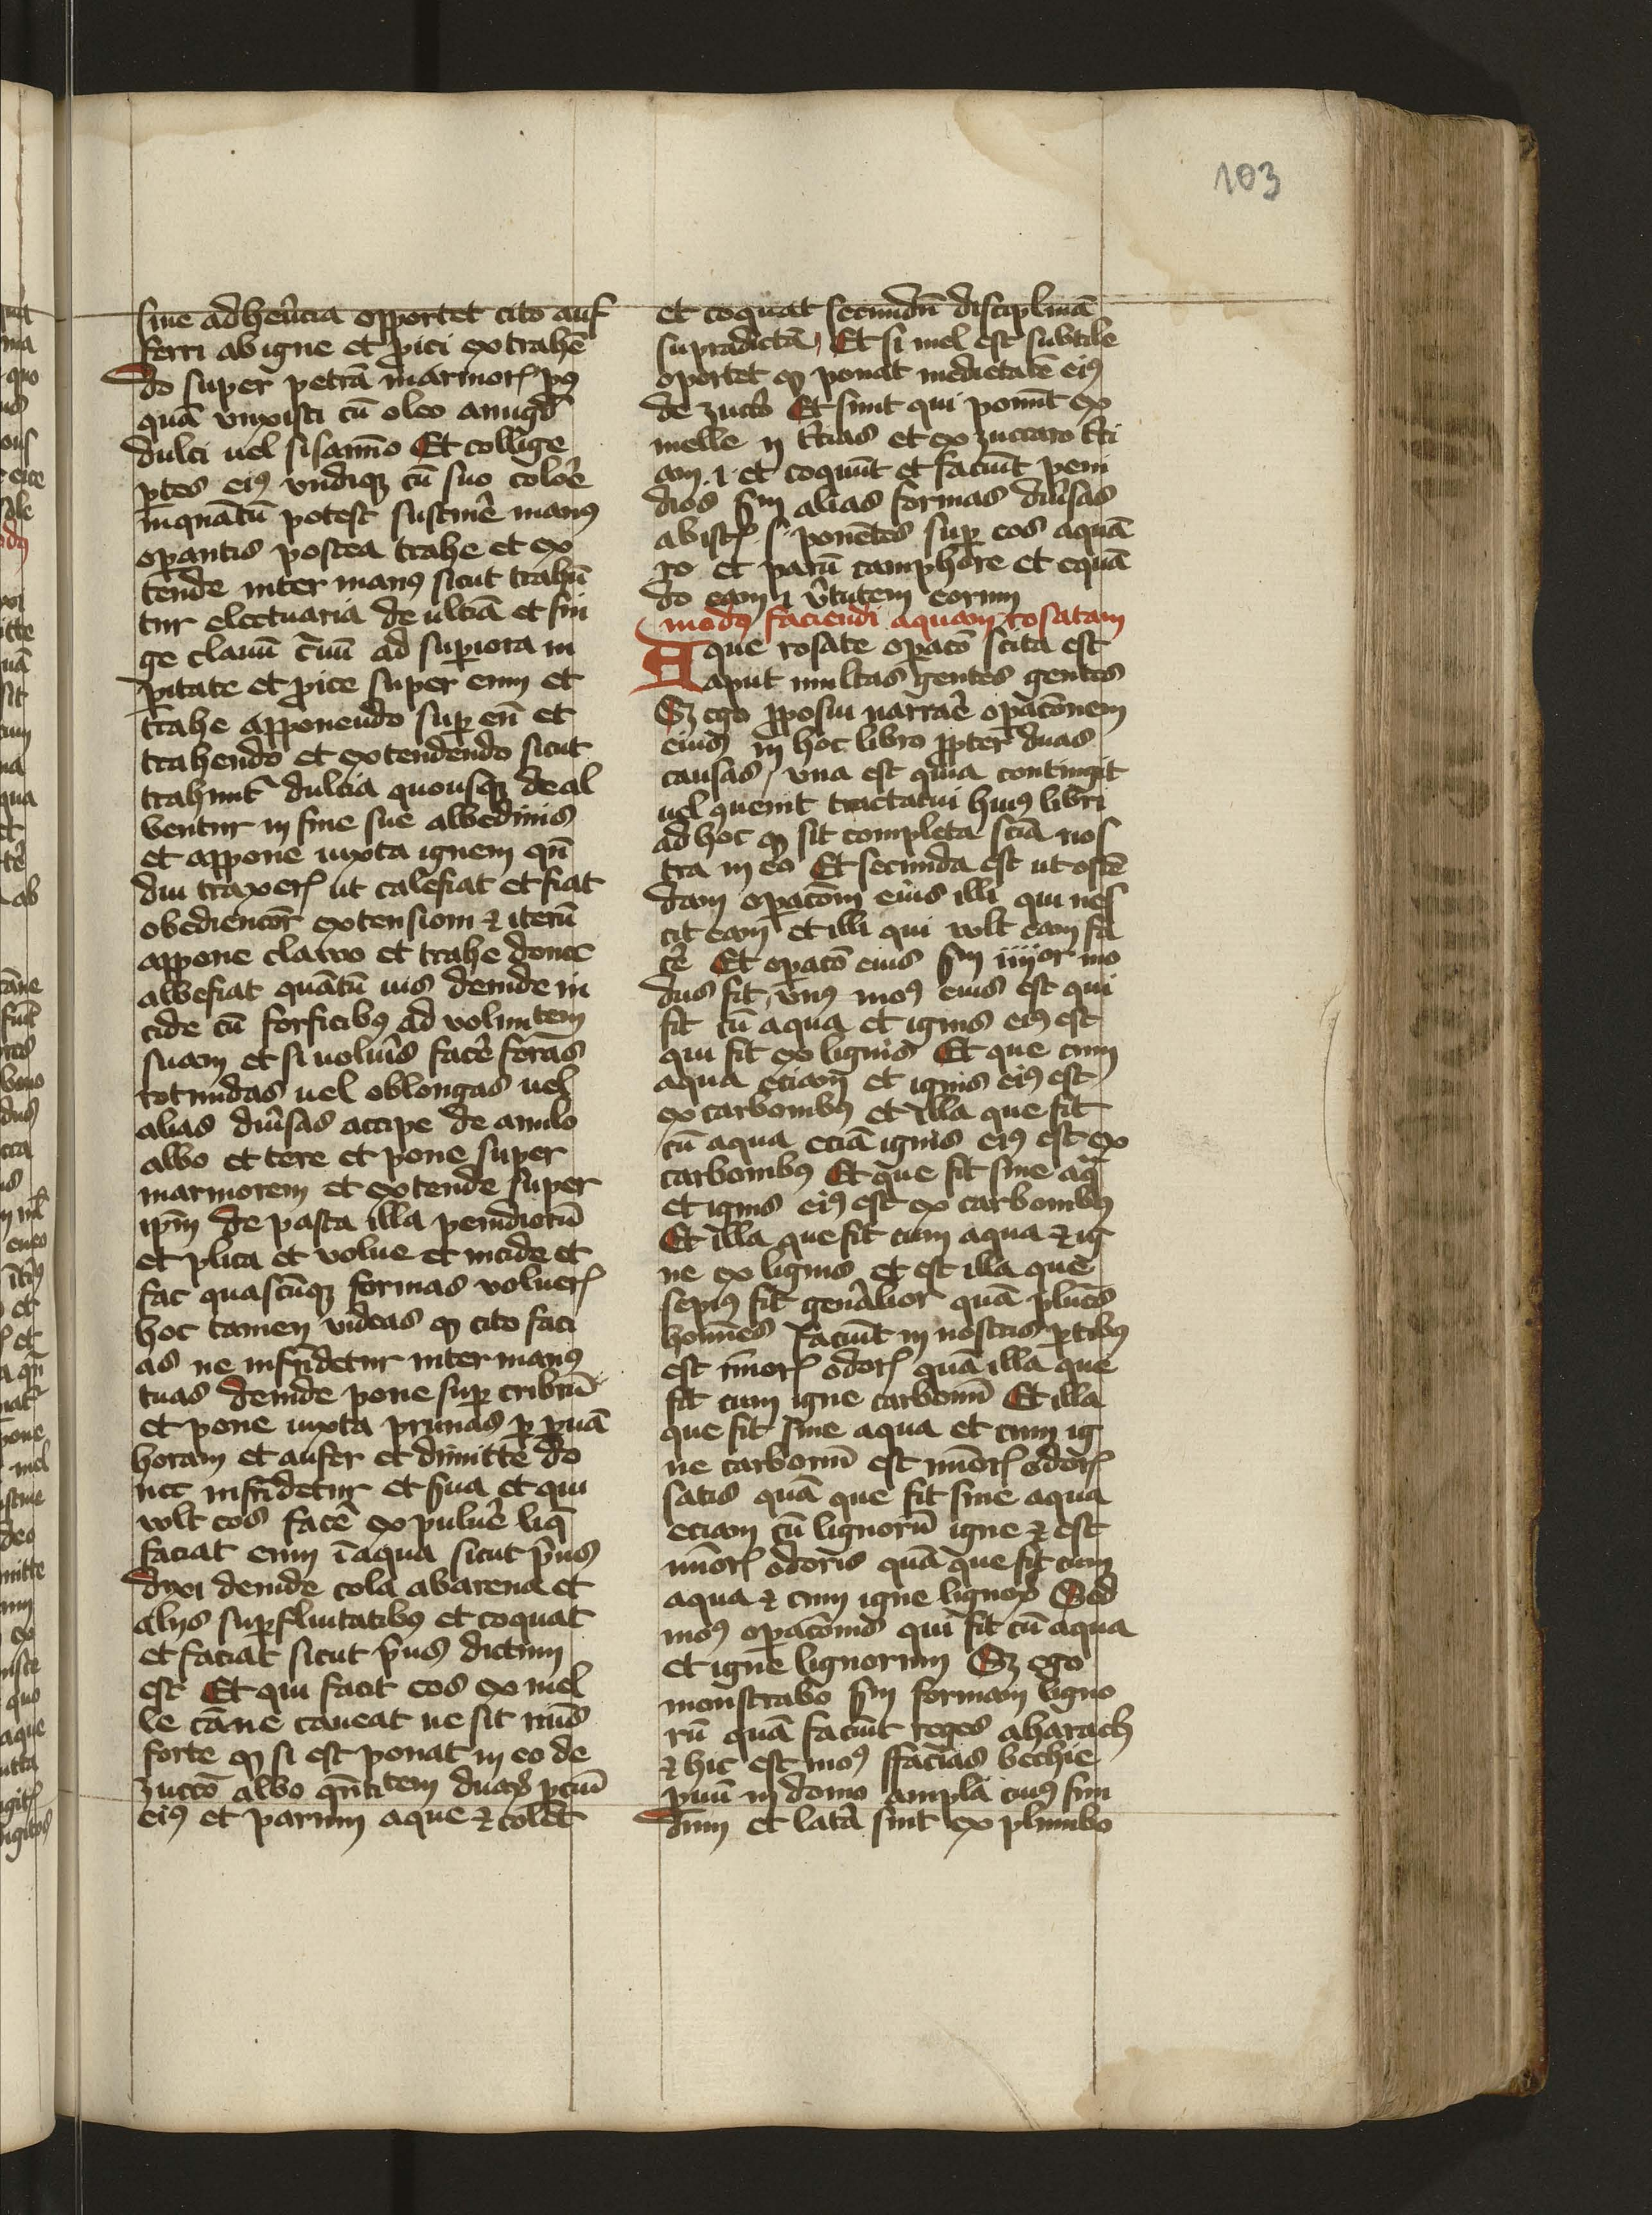 103
sine adherẽcia opportet cito auf
ferri ab igne et ꝓici extrahẽ
do super petrã marmorꝭ pꝰ
quã vnxisti cũ oleo amigd̉
dulci uel sisam̃o Et collige
ꝑtes eiꝰ vndiqꝫ cũ suo coloꝛe
inquãtũ potest sustinẽ manꝰ
oꝑantis postea trahe et ex
tende inter manꝰ sicut trahũ
tur electuaria de ulciã et fin
ge clauũ ad suꝑiora in
ꝑitate et ꝓice super eum et
trahe apponendo suꝑ eũ et
trahendo et extendendo sicut
trahunt̃ dulcia quousqꝫ deal
bentur in fine sue albedinis
et appone iuxta ignem qñ
diu traxerꝭ ut calefiat et fiat
obediencõr extensioni ⁊ iterũ
appone clauo et trahe donec
albefiat quãtũ uis deinde in
cide cũ forficibꝰ ad voluntem
suam et si uolũis facẽ forãs
rotundas uel oblongas uel
alias diũsas accipe de amilo
albo et tere et pone super
marmorem et extende super
ip̃m de pasta illa penidiorũ
et plica et volue et incide et
fac quascũqꝫ formas voluerꝭ
hoc tamen videas ꝙ cito faci
as ne infridetur inter manꝰ
tuas deinde pone suꝑ cribrũ
et pone iuxta prunas ꝑ ꝑuã
horam et aufer et dimitte do
nec infridetur et s̃ua et qui
vult eos facẽ ex puluẽ liq̃
faciat enim ĩ aqua sicut p̃us
dixi deinde cola ab arena et
alijs suꝑfluitatibꝰ et coquat
et faciat sicut p̃us dictum
est Et qui facit eos ex mel
le cãne caueat ne sit nimis
forte ꝙ si est ponat in eo de
zuccõ albo qñtitem duaꝝ ꝑciũ
eiꝰ et parum aque ⁊ colet̃
et coquat secundũ disciplinã
supradictã, Et si mel est subtile
oportet ꝙ ponat medietatẽ eiꝰ
de zucc̃o Et sunt qui ponũt ex
melle ij t̃cias et ex zuccaro t̃ci
am .i. et coquũt et faciũt peni
dios s̃m alias formas diũsas
ab istꝭ s̃ ponẽtes suꝑ eos aquã
ro et parũ camphore et equã
do eam ĩ v̉tutem eorum
modꝰ faciendi aquam rosatam
Aque rosate oꝑacõ scita est
aput multas gentes gentes
Sꝫ ego ꝓposui narraẽ oꝑacõnem
eius in hoc libro ꝓpter duas
causas, vna est quia contingit
uel ꝯuenit tractatui huiꝰ libri
ad hoc ꝙ sit completa sciã nos
tra in eo Et secunda est ut ostẽ
dam oꝑacõm eius illi qui nes
cit eam et illi qui vult eam fa
cẽ Et oꝑacõ eius s̃m iiijor mo
dus fit, vnꝰ moꝰ eius est qui
fit cũ aqua et ignis eiꝰ est
qui fit ex lignis Et que cum
aqua eciam et ignis eiꝰ est
ex carbonibꝰ et illa que fit
cũ aqua eciã ignis eiꝰ est ex
carbonibꝰ Et que fit sine aqᵃ
et ignis eiꝰ est ex carbonibꝰ
Et illa que fit cum aqua ⁊ ig
ne ex lignis et est illa que
sepiꝰ fit geñalior quã plũes
homĩes faciũt in nostris ꝑtibꝰ
est mĩorꝭ odorꝭ quã illa que
fit cum igne carbonũ Et illa
que fit sine aqua et cum ig
ne carbonũ est mĩorꝭ odorꝭ
satis quã que fit sine aqua
eciam cũ lignorũ igne ⁊ est
mĩorꝭ odoris quã que fit cum
aqua ⁊ cum igne lignoꝝ Sed
moꝰ oꝑacõnis qui fit cũ aqua
et igne lignorum Sꝫ ego
monstrabo s̃m formam ligno
rũ quã faciũt reges aharach
⁊ hic est moꝰ ffacias bechie
ꝑuũ in domo ampla cuiꝰ fun
dum et lata sint ex plumbo